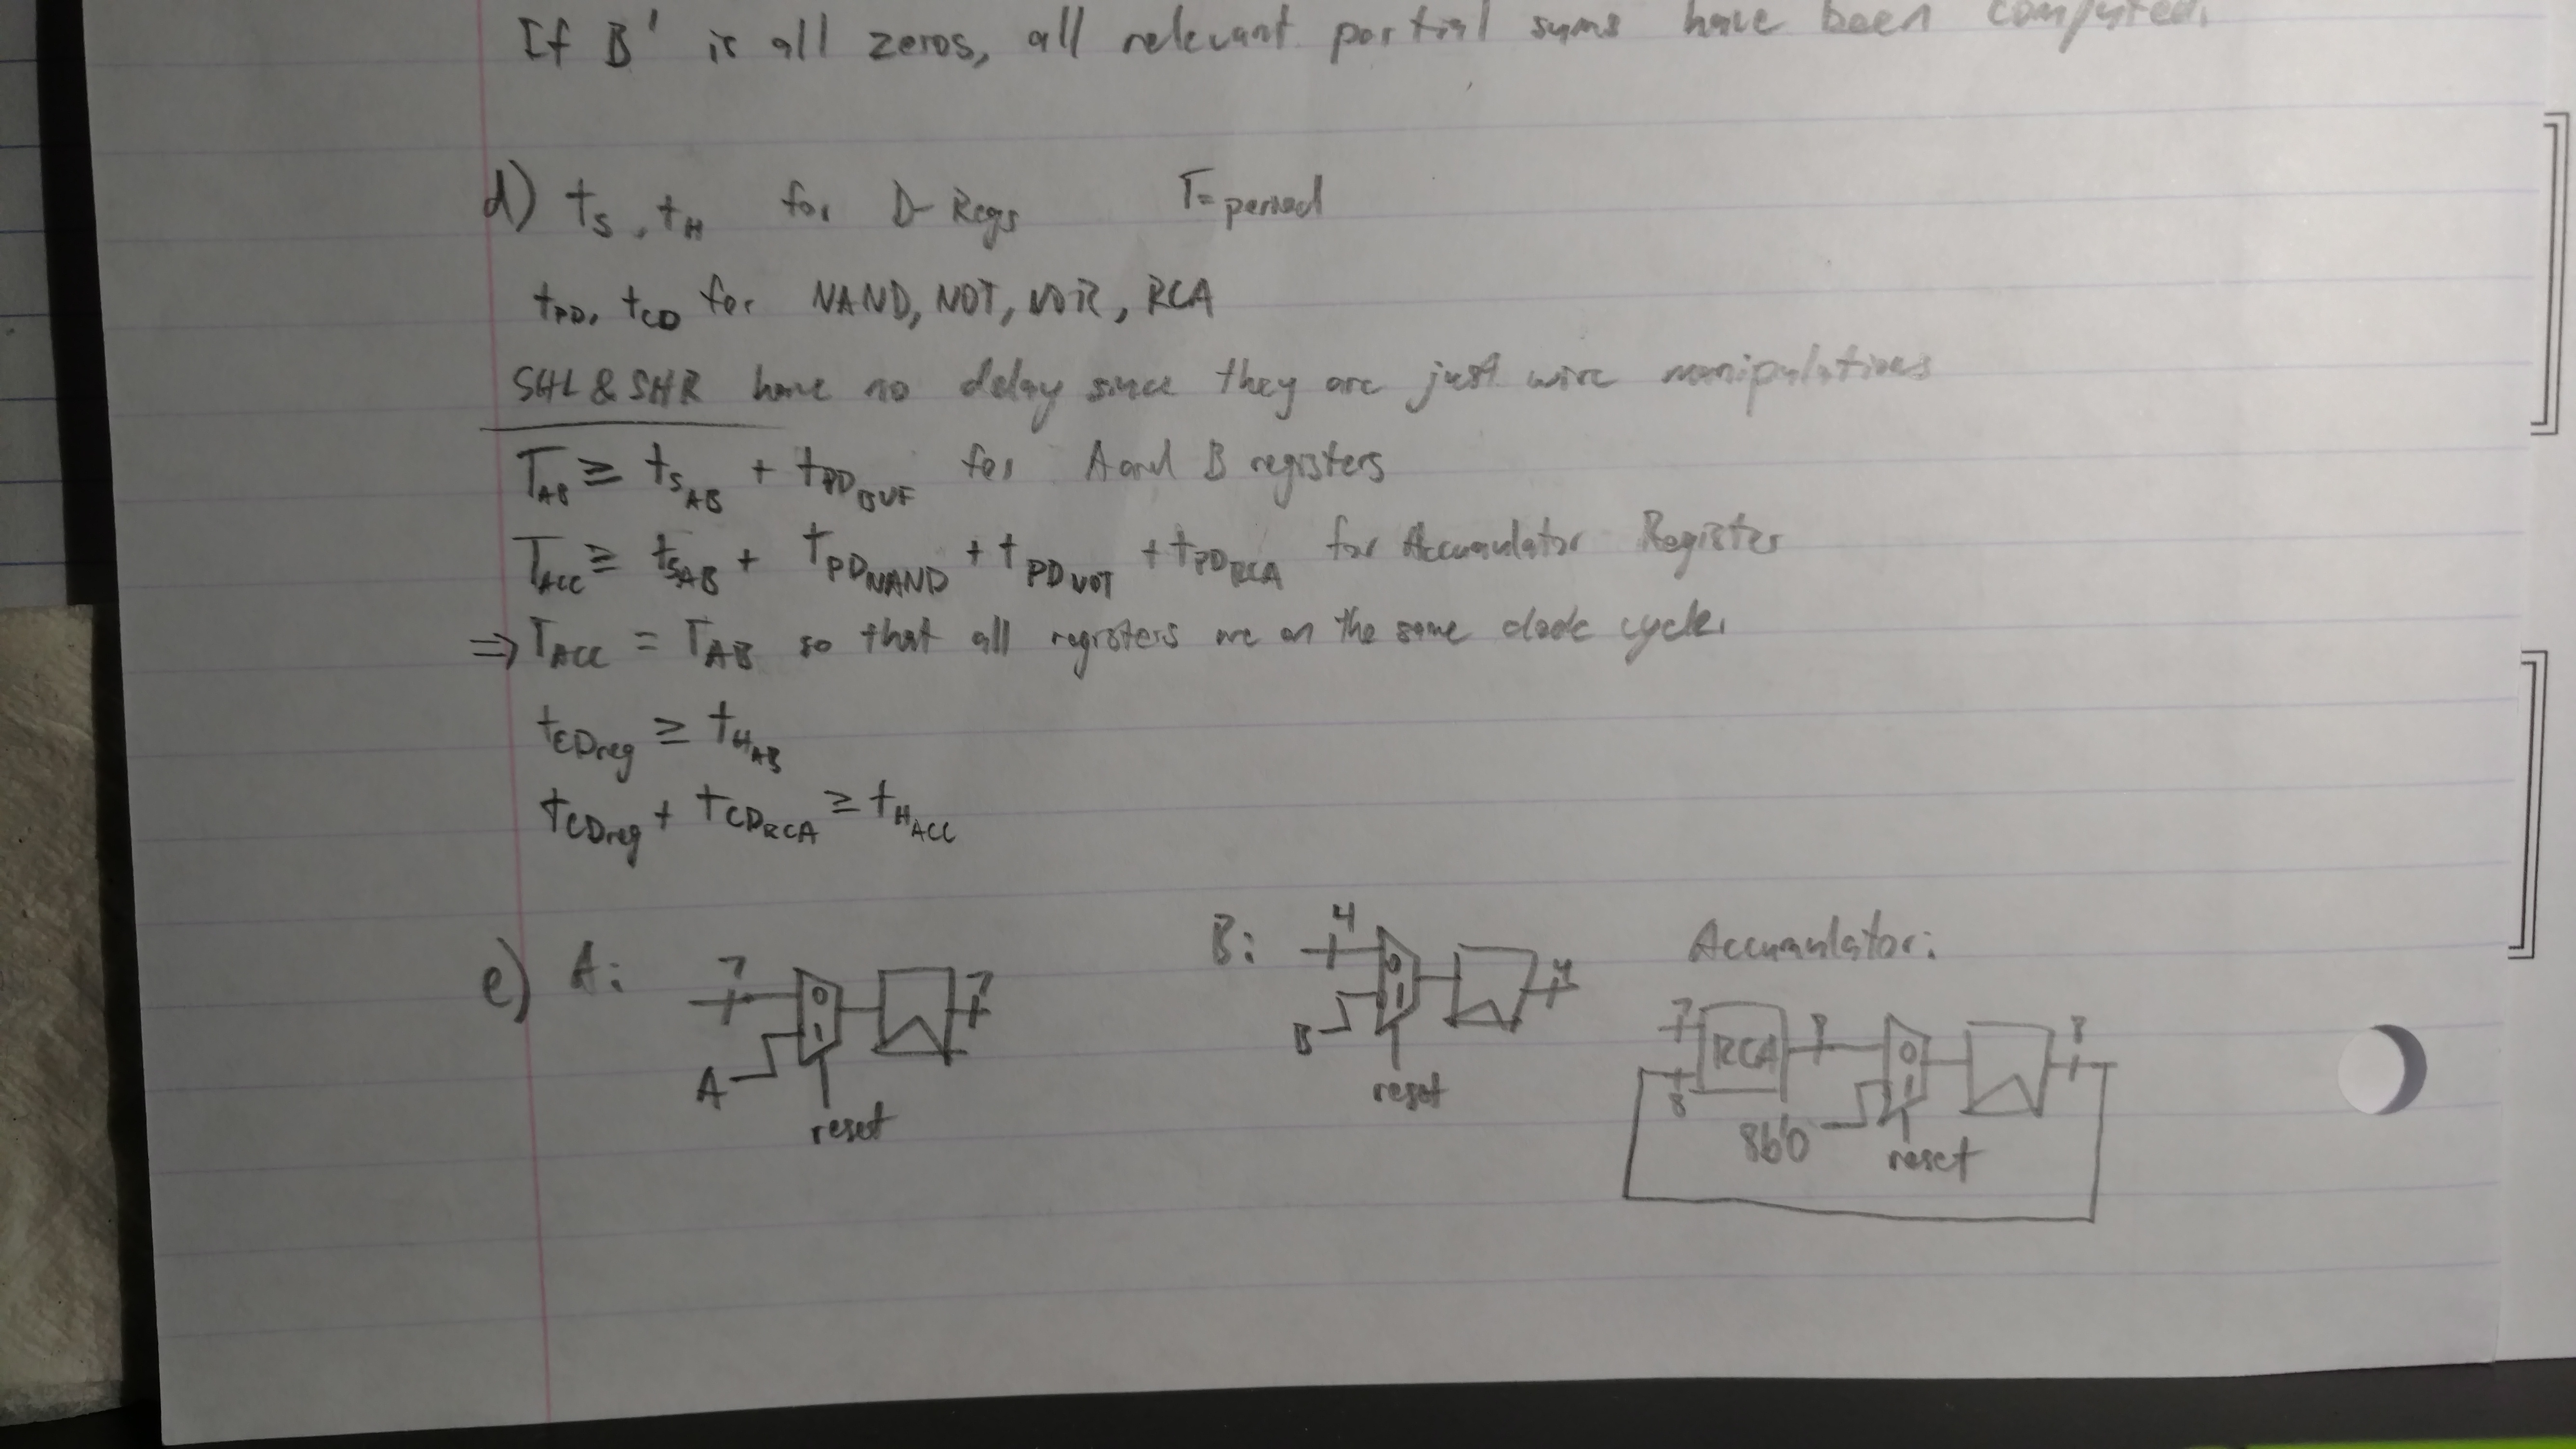 If B' is all zeros, all relevant partial sums have been computed.
d) tS, tH for D-Regs T=period
tPD, tCD for NAND, NOT, NOR, RCA
SHL & SHR have no delay since they are just wire manipulations
TAB ≥ tSAB + tPDBUF for A and B registers
TACC ≥ tSAB + tPDNAND + tPDNOT + tPDRCA for Accumulator Register
⇒ TACC = TAB so that all registers are on the same clock cycle.
tCDreg ≥ tHAB
tCDreg + tCDRCA ≥ tHACC
e) A: B: Accumulator:
7 0 1 7 A reset
4 0 1 4 B reset
7 8 RCA 8 0 1 8 8b'0 reset